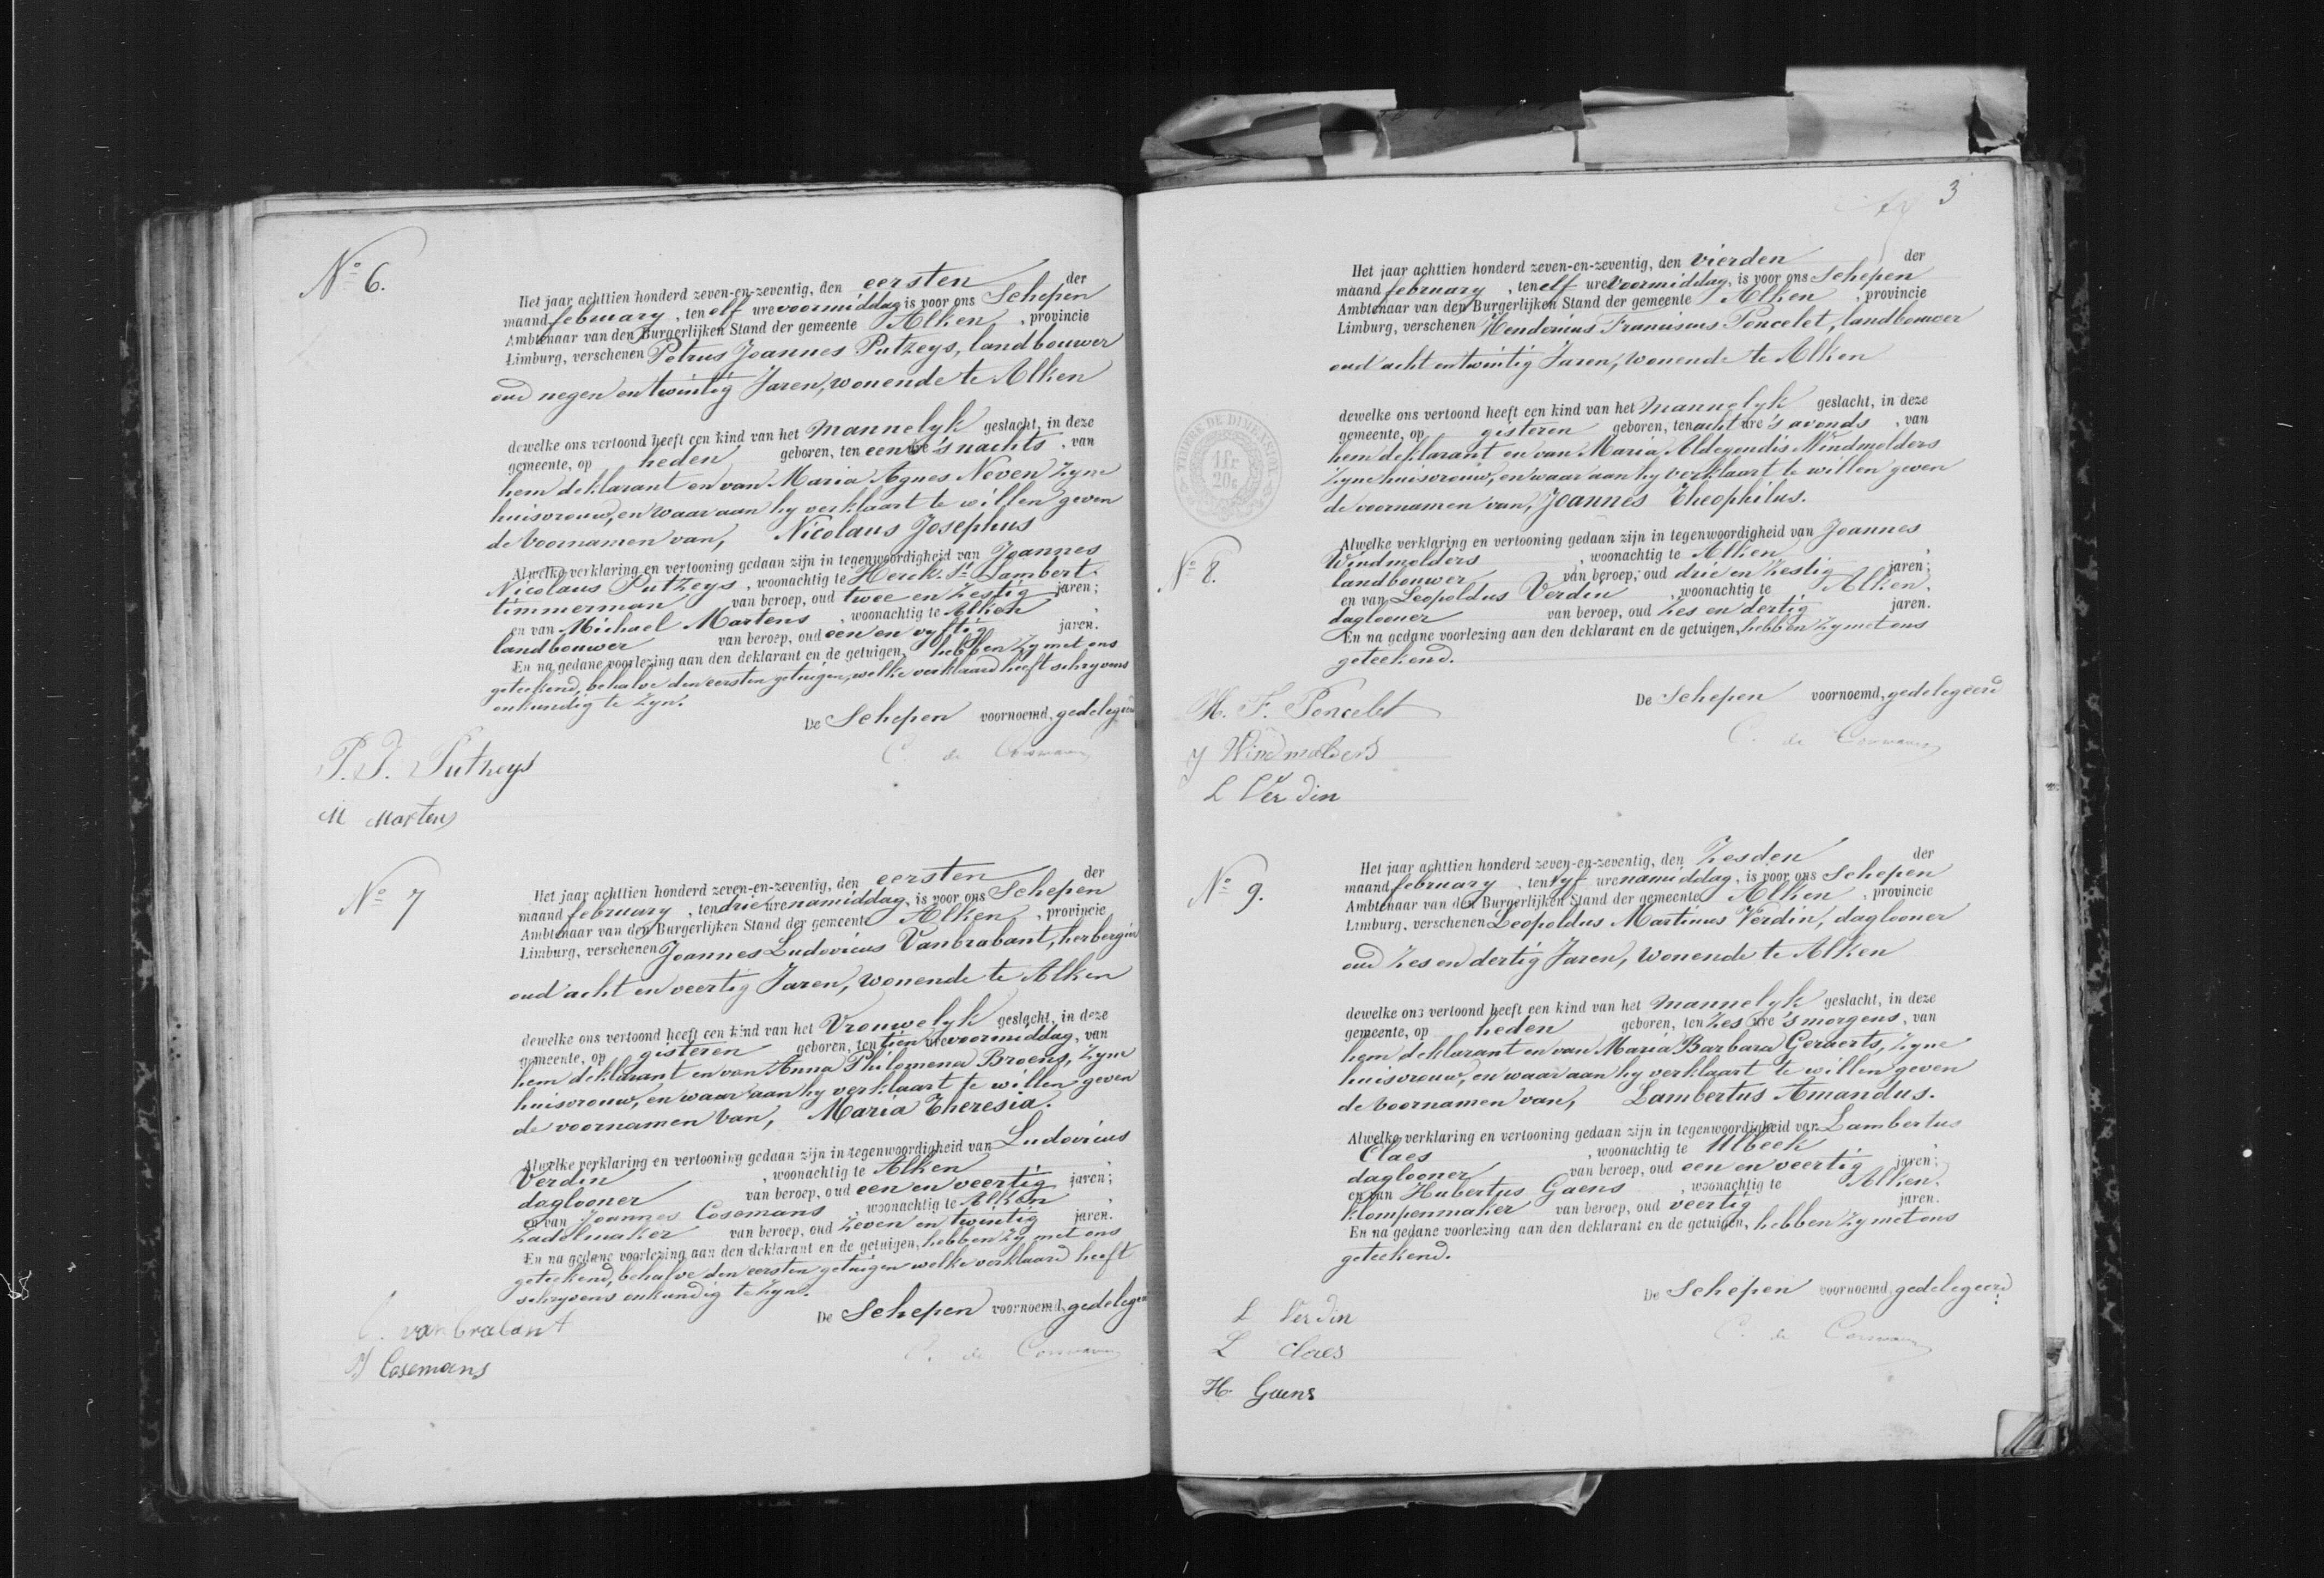 Nº 6.
Het jaar achttien honderd zeven-en-zeventig, den eersten der
maand february, ten elf ure voormiddag is voor ons Schepen
Ambtenaar van den Burgerlijken Stand der gemeente Alken, provincie
Limburg, verschenen Petrus Joannes Putzeys, landbouwer
oud negen en twintig Jaren, wonende te Alken
dewelke ons vertoond heeft een kind van het Mannelyk geslacht, in deze
gemeente, op heden geboren, ten een ure 's nachts, van
hem deklarant en van Maria Agnes Neven zyne
huisvrouw, en waar aan hy verklaart te willen geven
de voornamen van, Nicolaus Josephus
Alwelke verklaring en vertooning gedaan zijn in tegenwoordigheid van Joannes
Nicolaus Putzeys, woonachtig te Herck-St Lambert.
timmerman van beroep, oud twee en zestig jaren;
en van Michael Martens, woonachtig te Alken,
landbouwer van beroep, oud een en vyftig jaren.
En na gedane voorlezing aan den deklarant en de getuigen, hebben zy met ons
geteekend, behalve den eersten getuigen, welke verklaard heeft schryvens
onkundig te zyn.
De Schepen voornoemd, gedelegeerd
C. de
P. J. Putzeys
M Martens
Nº 7
Het jaar achttien honderd zeven-en-zeventig, den eersten der
maand february, ten drie ure namiddag, is voor ons Schepen
Ambtenaar van den Burgerlijken Stand der gemeente Alken, provincie
Limburg, verschenen Joannes Ludovicus Vanbrabant, herbergier
oud acht en veertig Jaren, wonende te Alken
dewelke ons vertoond heeft een kind van het Vrouwelyk geslacht, in deze
gemeente, op gisteren geboren, ten tien ure voormiddag, van
hem deklarant en van Anna Philomena Broens, zyne
huisvrouw, en waar aan hy verklaart te willen geven
de voornamen van, Maria Theresia.
Alwelke verklaring en vertooning gedaan zijn in tegenwoordigheid van Ludovicus
Verdin, woonachtig te Alken,
daglooner van beroep, oud een en veertig jaren;
en van Joannes Cosemans, woonachtig te Alken,
zadelmaker van beroep, oud zeven en twintig jaren.
En na gedane voorlezing aan den deklarant en de getuigen, hebben zy met ons
geteekend, behalve den eersten getuigen welke verklaard heeft
schryvens onkundig te zyn.
De Schepen voornoemd, gedelegeerd
C. de
vanbrabant
J Cosemans
3
TIMBRE DE DIMENSION
1 fr
20c
Nº 8.
Het jaar achttien honderd zeven-en-zeventig, den vierden der
maand february, ten elf ure voormiddag, is voor ons Schepen
Ambtenaar van den Burgerlijken Stand der gemeente Alken, provincie
Limburg, verschenen Hendericus Franciscus Poncelet, landbouwer
oud acht en twintig Jaren, wonende te Alken
dewelke ons vertoond heeft een kind van het Mannelyk geslacht, in deze
gemeente, op gisteren geboren, ten acht ure 's avonds, van
hem deklarant en van Maria Aldegondis Windmolders
zyne huisvrouw, en waar aan hy verklaart te willen geven
de voornamen van, Joannes Theophilus.
Alwelke verklaring en vertooning gedaan zijn in tegenwoordigheid van Joannes
Windmolders, woonachtig te Alken,
landbouwer van beroep, oud drie en zestig jaren;
en van Leopoldus Verdin, woonachtig te Alken,
daglooner van beroep, oud zes en dertig jaren.
En na gedane voorlezing aan den deklarant en de getuigen, hebben zy met ons
geteekend.
De Schepen voornoemd, gedelegeerd
C. de
H. F. Poncelet
J Windmolders
L Verdin
Nº 9.
Het jaar achttien honderd zeven-en-zeventig, den zesden der
maand february, ten vyf ure namiddag, is voor ons Schepen
Ambtenaar van den Burgerlijken Stand der gemeente Alken, provincie
Limburg, verschenen Leopoldus Martinus Verdin, daglooner
oud zes en dertig Jaren, wonende te Alken
dewelke ons vertoond heeft een kind van het mannelyk geslacht, in deze
gemeente, op heden geboren, ten zes ure 's morgens, van
hem deklarant en van Maria Barbara Geraerts, zyne
huisvrouw, en waar aan hy verklaart te willen geven
de voornamen van, Lambertus Amandus.
Alwelke verklaring en vertooning gedaan zijn in tegenwoordigheid van Lambertus
Claes, woonachtig te Ulbeek,
daglooner van beroep, oud een en veertig jaren;
en van Hubertus Gaens, woonachtig te Alken.
klompenmaker van beroep, oud veertig jaren.
En na gedane voorlezing aan den deklarant en de getuigen, hebben zy met ons
geteekend.
De Schepen voornoemd, gedelegeerd
C. de
L Verdin
L Claes
H. Gaens